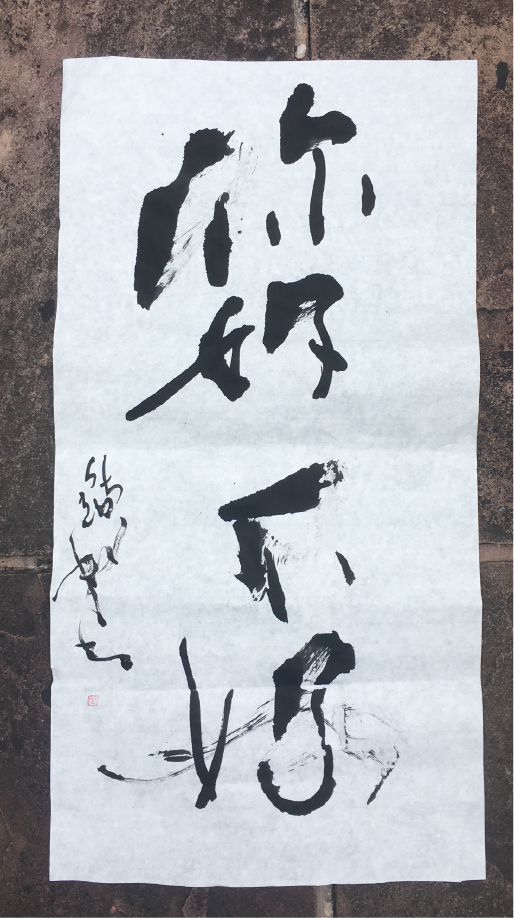 你好不好